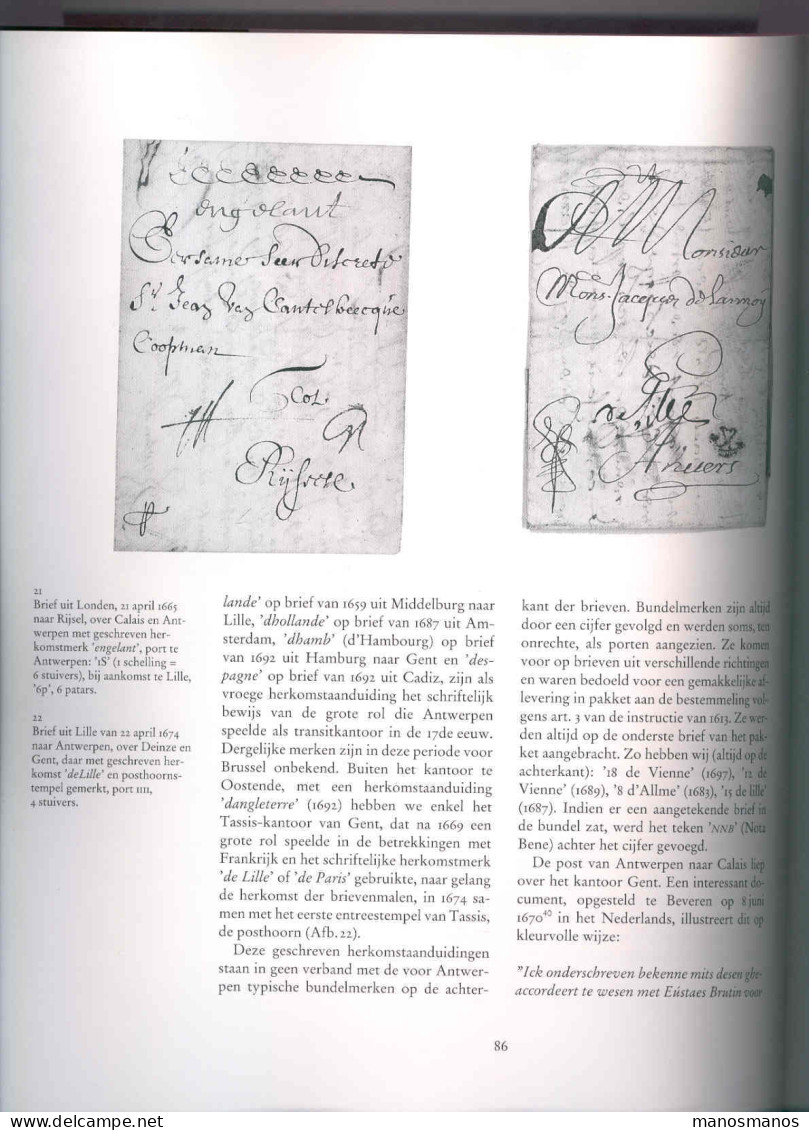 engelant
Eersame seer discrete
Sr. Jean Van Cantelbeecque
Coopman
Col.
Rijssele
A Monsieur
Mons. Jacques de Lannoy
de Lille
Anvers
21
Brief uit Londen, 21 april 1665
naar Rijsel, over Calais en Ant-
werpen met geschreven her-
komstmerk 'engelant', port te
Antwerpen: '1S' (1 schelling =
6 stuivers), bij aankomst te Lille,
'6p', 6 patars.
22
Brief uit Lille van 22 april 1674
naar Antwerpen, over Deinze en
Gent, daar met geschreven her-
komst 'deLille' en posthoorns-
tempel gemerkt, port IIII,
4 stuivers.
lande' op brief van 1659 uit Middelburg naar
Lille, 'dhollande' op brief van 1687 uit Am-
sterdam, 'dhamb' (d'Hambourg) op brief
van 1692 uit Hamburg naar Gent en 'des-
pagne' op brief van 1692 uit Cadiz, zijn als
vroege herkomstaanduiding het schriftelijk
bewijs van de grote rol die Antwerpen
speelde als transitkantoor in de 17de eeuw.
Dergelijke merken zijn in deze periode voor
Brussel onbekend. Buiten het kantoor te
Oostende, met een herkomstaanduiding
'dangleterre' (1692) hebben we enkel het
Tassis-kantoor van Gent, dat na 1669 een
grote rol speelde in de betrekkingen met
Frankrijk en het schriftelijke herkomstmerk
'de Lille' of 'de Paris' gebruikte, naar gelang
de herkomst der brievenmalen, in 1674 sa-
men met het eerste entreestempel van Tassis,
de posthoorn (Afb.22).
Deze geschreven herkomstaanduidingen
staan in geen verband met de voor Antwer-
pen typische bundelmerken op de achter-
kant der brieven. Bundelmerken zijn altijd
door een cijfer gevolgd en werden soms, ten
onrechte, als porten aangezien. Ze komen
voor op brieven uit verschillende richtingen
en waren bedoeld voor een gemakkelijke af-
levering in pakket aan de bestemmeling vol-
gens art. 3 van de instructie van 1613. Ze wer-
den altijd op de onderste brief van het pak-
ket aangebracht. Zo hebben wij (altijd op de
achterkant): '18 de Vienne' (1697), '12 de
Vienne' (1689), '8 d'Allme' (1683), '15 de lille'
(1687). Indien er een aangetekende brief in
de bundel zat, werd het teken 'NNB' (Nota
Bene) achter het cijfer gevoegd.
De post van Antwerpen naar Calais liep
over het kantoor Gent. Een interessant do-
cument, opgesteld te Beveren op 8 juni
1670⁴⁰ in het Nederlands, illustreert dit op
kleurvolle wijze:
"Ick onderschreven bekenne mits desen ghe-
accordeert te wesen met Eústaes Brutin voor
86
manosmanos